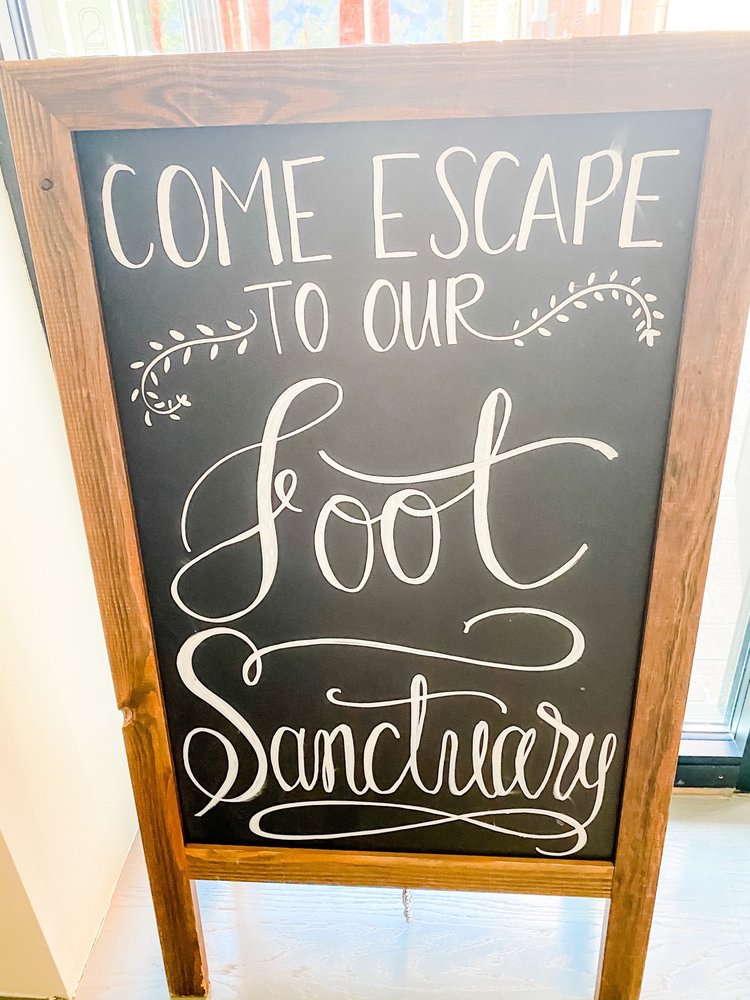 COME ESCAPE
TO OUR
Foot
Sanctuary